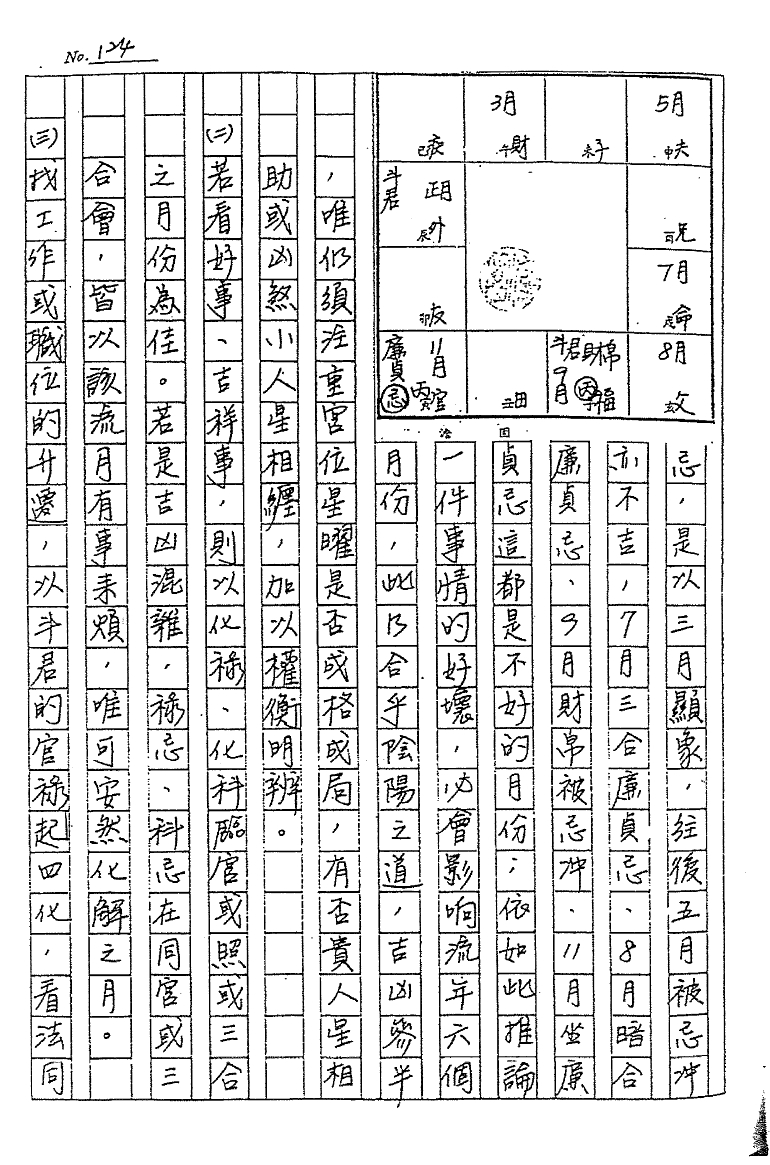 No. 124
3月
5月
巳疾
午財
未子
申夫
斗君
正月
辰外
酉兄
7月
卯友
戌命
廉貞
忌
11月
丙寅官
丑田
斗君
9月
財棉
丙
子福
8月
亥父
忌，是以三月顯象，往後五月被忌冲
亦不吉，7月三合廉貞忌、8月暗合
廉貞忌、9月財帛被忌冲、11月坐廉
貞忌這都是不好的月份；依如此推論
一件事情的好壞，必會影响流年六個
月份，此乃合乎陰陽之道，吉凶參半
，唯仍須注重宮位星曜是否成格成局，有否貴人星相
助或凶煞小人星相纏，加以權衡明辨。
(二)若看好事、吉祥事，則以化祿、化科臨宮或照或三合
之月份為佳。若是吉凶混雜，祿忌、科忌在同宮或三
合會，皆以該流月有事來煩，唯可安然化解之月。
(三)找工作或職位的升遷，以斗君的官祿起四化，看法同